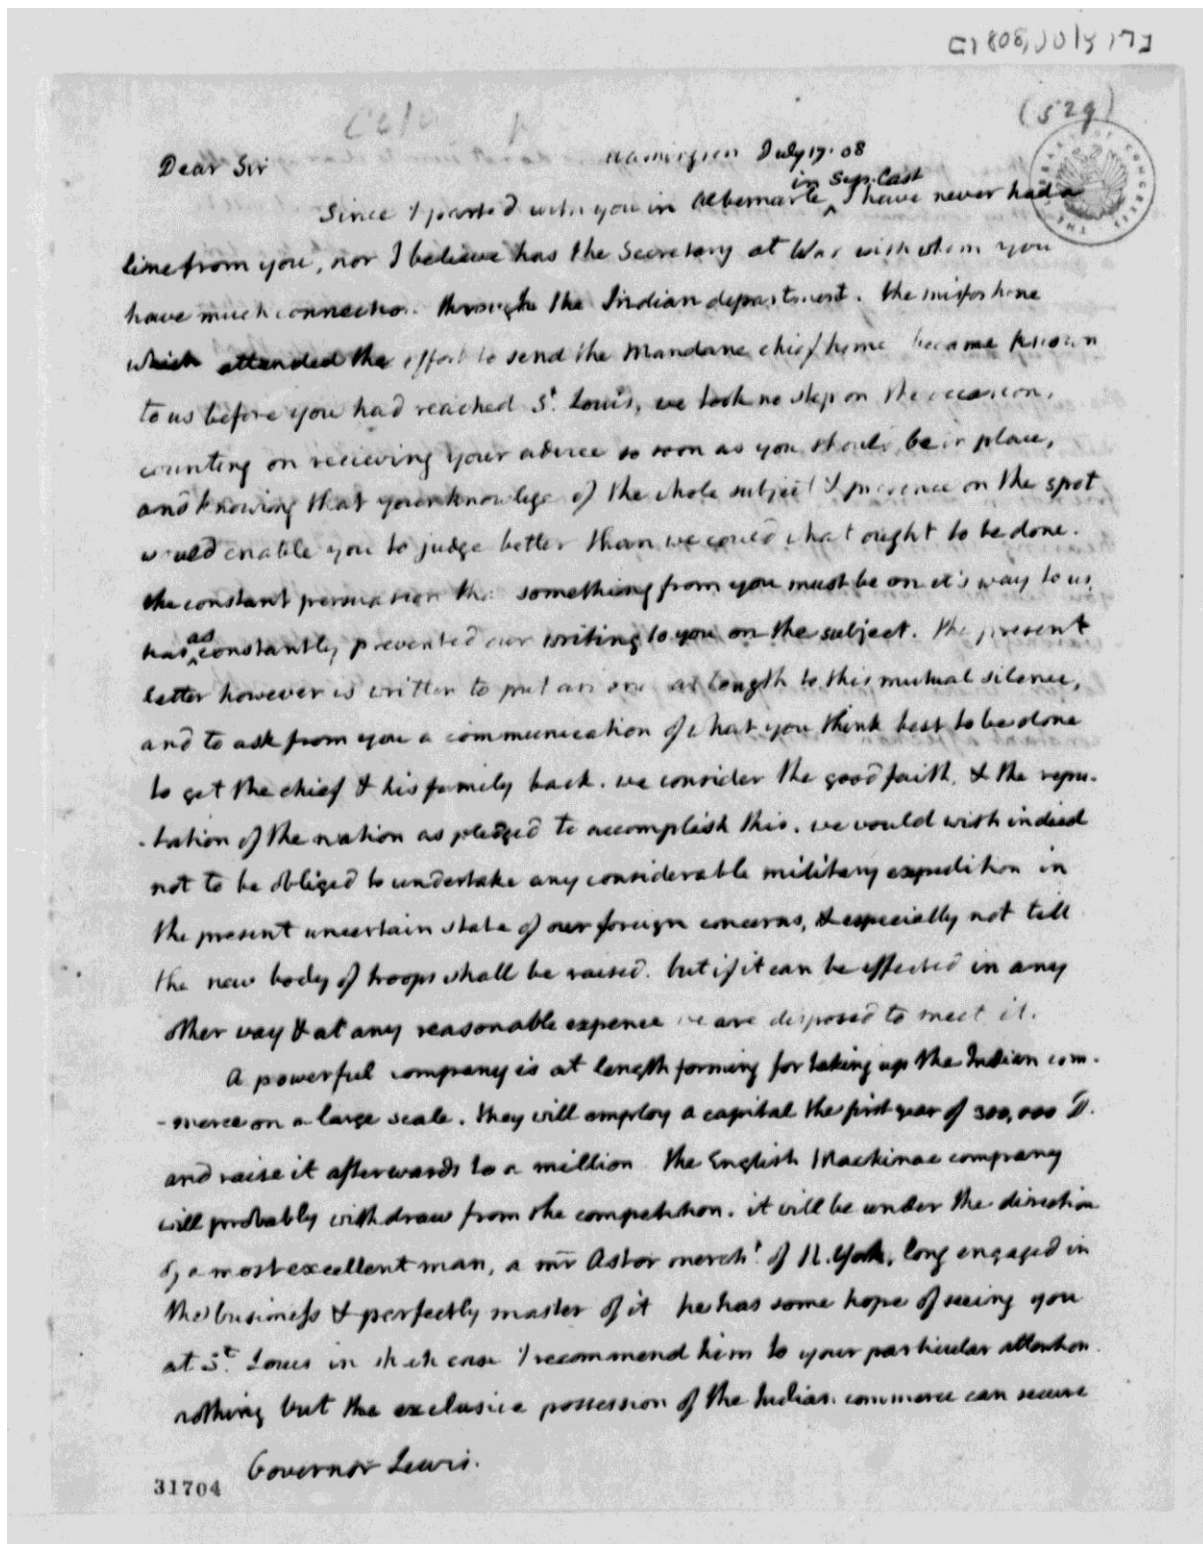 [1808, July 17]
(529)
Dear Sir
Washington July 17. 08
in Sep. last
Since I parted with you in Albemarle I have never had a
line from you, nor I believe has the Secretary at War with whom you
have much connection through the Indian department. the misfortune
which attended the effort to send the Mandane chief home became known
to us before you had reached St. Louis, we took no step on the occasion,
counting on recieving your advice so soon as you should be in place,
and knowing that your knowlege of the whole subject & presence on the spot
would enable you to judge better than we could what ought to be done.
the constant persuasion that something from you must be on it's way to us,
has as constantly prevented our writing to you on the subject. the present
letter however is written to put an end at length to this mutual silence,
and to ask from you a communication of what you think best to be done
to get the chief & his family back. we consider the good faith, & the repu-
-tation of the nation as pledged to accomplish this. we would wish indeed
not to be obliged to undertake any considerable military expedition in
the present uncertain state of our foreign concerns, & especially not till
the new body of troops shall be raised. but if it can be effected in any
other way & at any reasonable expence we are disposed to meet it.
A powerful company is at length forming for taking up the Indian com-
-merce on a large scale. they will employ a capital the first year of 300,000 D.
and raise it afterwards to a million. the English Mackinac company
will probably withdraw from the competition. it will be under the direction
of a most excellent man, a mr Astor mercht. of N. York, long engaged in
the business & perfectly master of it he has some hope of seeing you
at St. Louis in which case I recommend him to your particular attention.
nothing but the exclusive possession of the Indian commerce can secure
Governor Lewis.
31704
THE LIBRARY OF CONGRESS